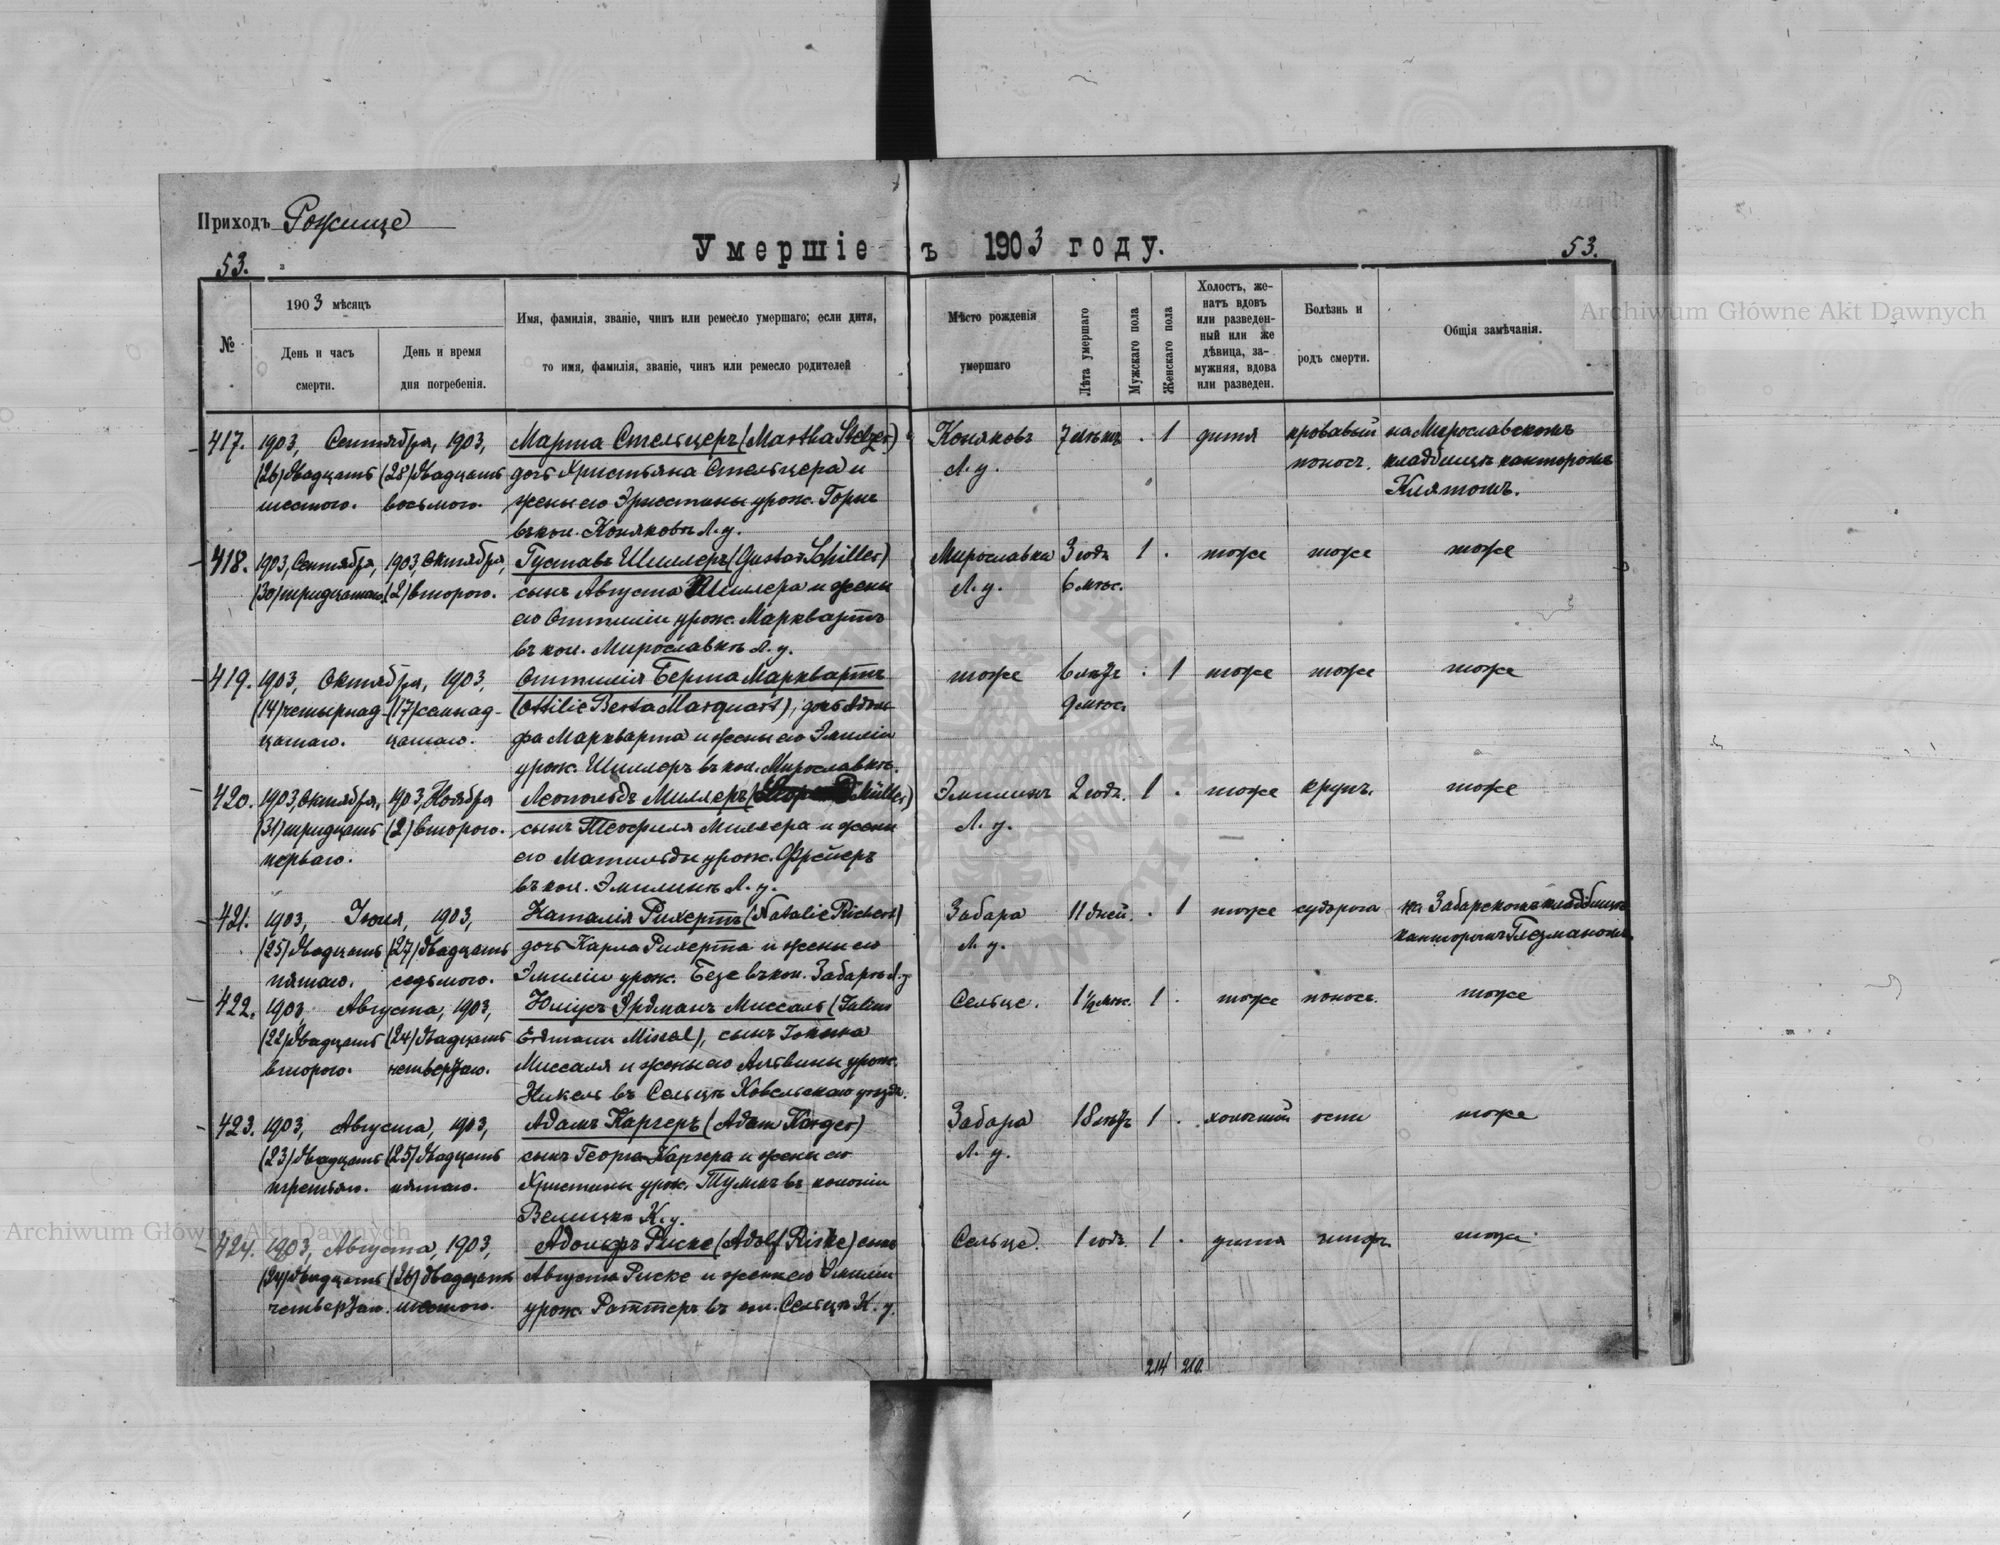 Приходъ Рожище
Умершіе въ 1903 году.
53. 53.
№
1903 мѣсяцъ
День и часъ смерти.
День и время дня погребенія.
Имя, фамилія, званіе, чинъ или ремесло умершаго; если дитя,
то имя, фамилія, званіе, чинъ или ремесло родителей
Мѣсто рожденія умершаго
Лѣта умершаго
Мужскаго пола
Женскаго пола
Холостъ, же-
натъ вдовъ
или разведен-
ный или же
дѣвица, за-
мужняя, вдова
или разведен.
Болѣзнь и родъ смерти.
Общія замѣчанія.
417. 1903, Сентября, 1903, Марта Стельцеръ (Martha Stelzer) Коняковъ 7 . 1 дитя кровавый на Мирославскомъ
(26) двадцать (28) двадцать дочь Христьяна Стельцера и Л. у. поносъ. кладбищѣ канторомъ
шестого. восьмого. жены его урож. Горнъ
въ кол. Коняковѣ Л. у.
418. 1903, Сентября, 1903, Октября, Густавъ Шиллеръ (Gustav Schiller) Мирославка 3 года 1 . тоже тоже тоже
(30) тридцатаго (2) второго. сынъ Августа Шиллера и жены Л. у. 6 мѣс.
его Оттиліи урож. Марквартъ
въ кол. Мирославкѣ Л. у.
419. 1903, Октября, 1903, Оттилія Берта Марквартъ тоже 6 лѣтъ . 1 тоже тоже тоже
(14) четырнад- (17) семнад- (Ottilie Berta Marquart), дочь Адоль- 9 мѣс.
цатаго. цатаго. фа Маркварта и жены его Эмиліи
урож. Шиллеръ въ кол. Мирославкѣ.
420. 1903, Октября, 1903, Ноября Леопольдъ Миллеръ ( Müller) Эмилинъ 2 года. 1 . тоже крупъ. тоже
(31) тридцать (2) второго. сынъ Теофиля Миллера и жены Л. у.
перваго. его Матильды урож. Фрейеръ
въ кол. Эмилинѣ Л. у.
421. 1903, Іюля, 1903, Наталія Рихертъ (Natalie Richert) Забара 11 дней. . 1 тоже судорога на Забарскомъ кладбищѣ
(25) двадцать (27) двадцать дочь Карла Рихерта и жены его Л. у. канторомъ
пятаго. седьмого. Эмиліи урож. Безе въ кол. Забарѣ Л. у
422. 1903, Августа, 1903, Юліусъ Эрдманъ Миссаль (Julius Сельце. 1½ мѣс. 1 . тоже поносъ. тоже
(22) двадцать (24) двадцать Erdmann Missal), сынъ
второго. четвертаго. Миссаля и жены его Альвины урож.
Никель въ Сельцѣ Ковельскаго уѣзда.
423. 1903, Августа, 1903, Адамъ Каргеръ (Adam Karger) Забара 18 лѣтъ 1 . холостой оспа тоже
(23) двадцать (25) двадцать сынъ Георга Каргера и жены его Л. у.
третьяго. пятаго. Христины урож. въ колоніи
Велицкѣ К. у.
424. 1903, Августа, 1903, Адольфъ Риске (Adolf Riske) сынъ Сельце. 1 годъ. 1 . дитя тифъ тоже
(24) двадцать (26) двадцать Августа Риске и жены его Эмиліи
четвертаго. шестого. урож. Роттеръ въ кол. Сельцѣ К. у.
214 210.
Archiwum Główne Akt Dawnych
Archiwum Główne Akt Dawnych